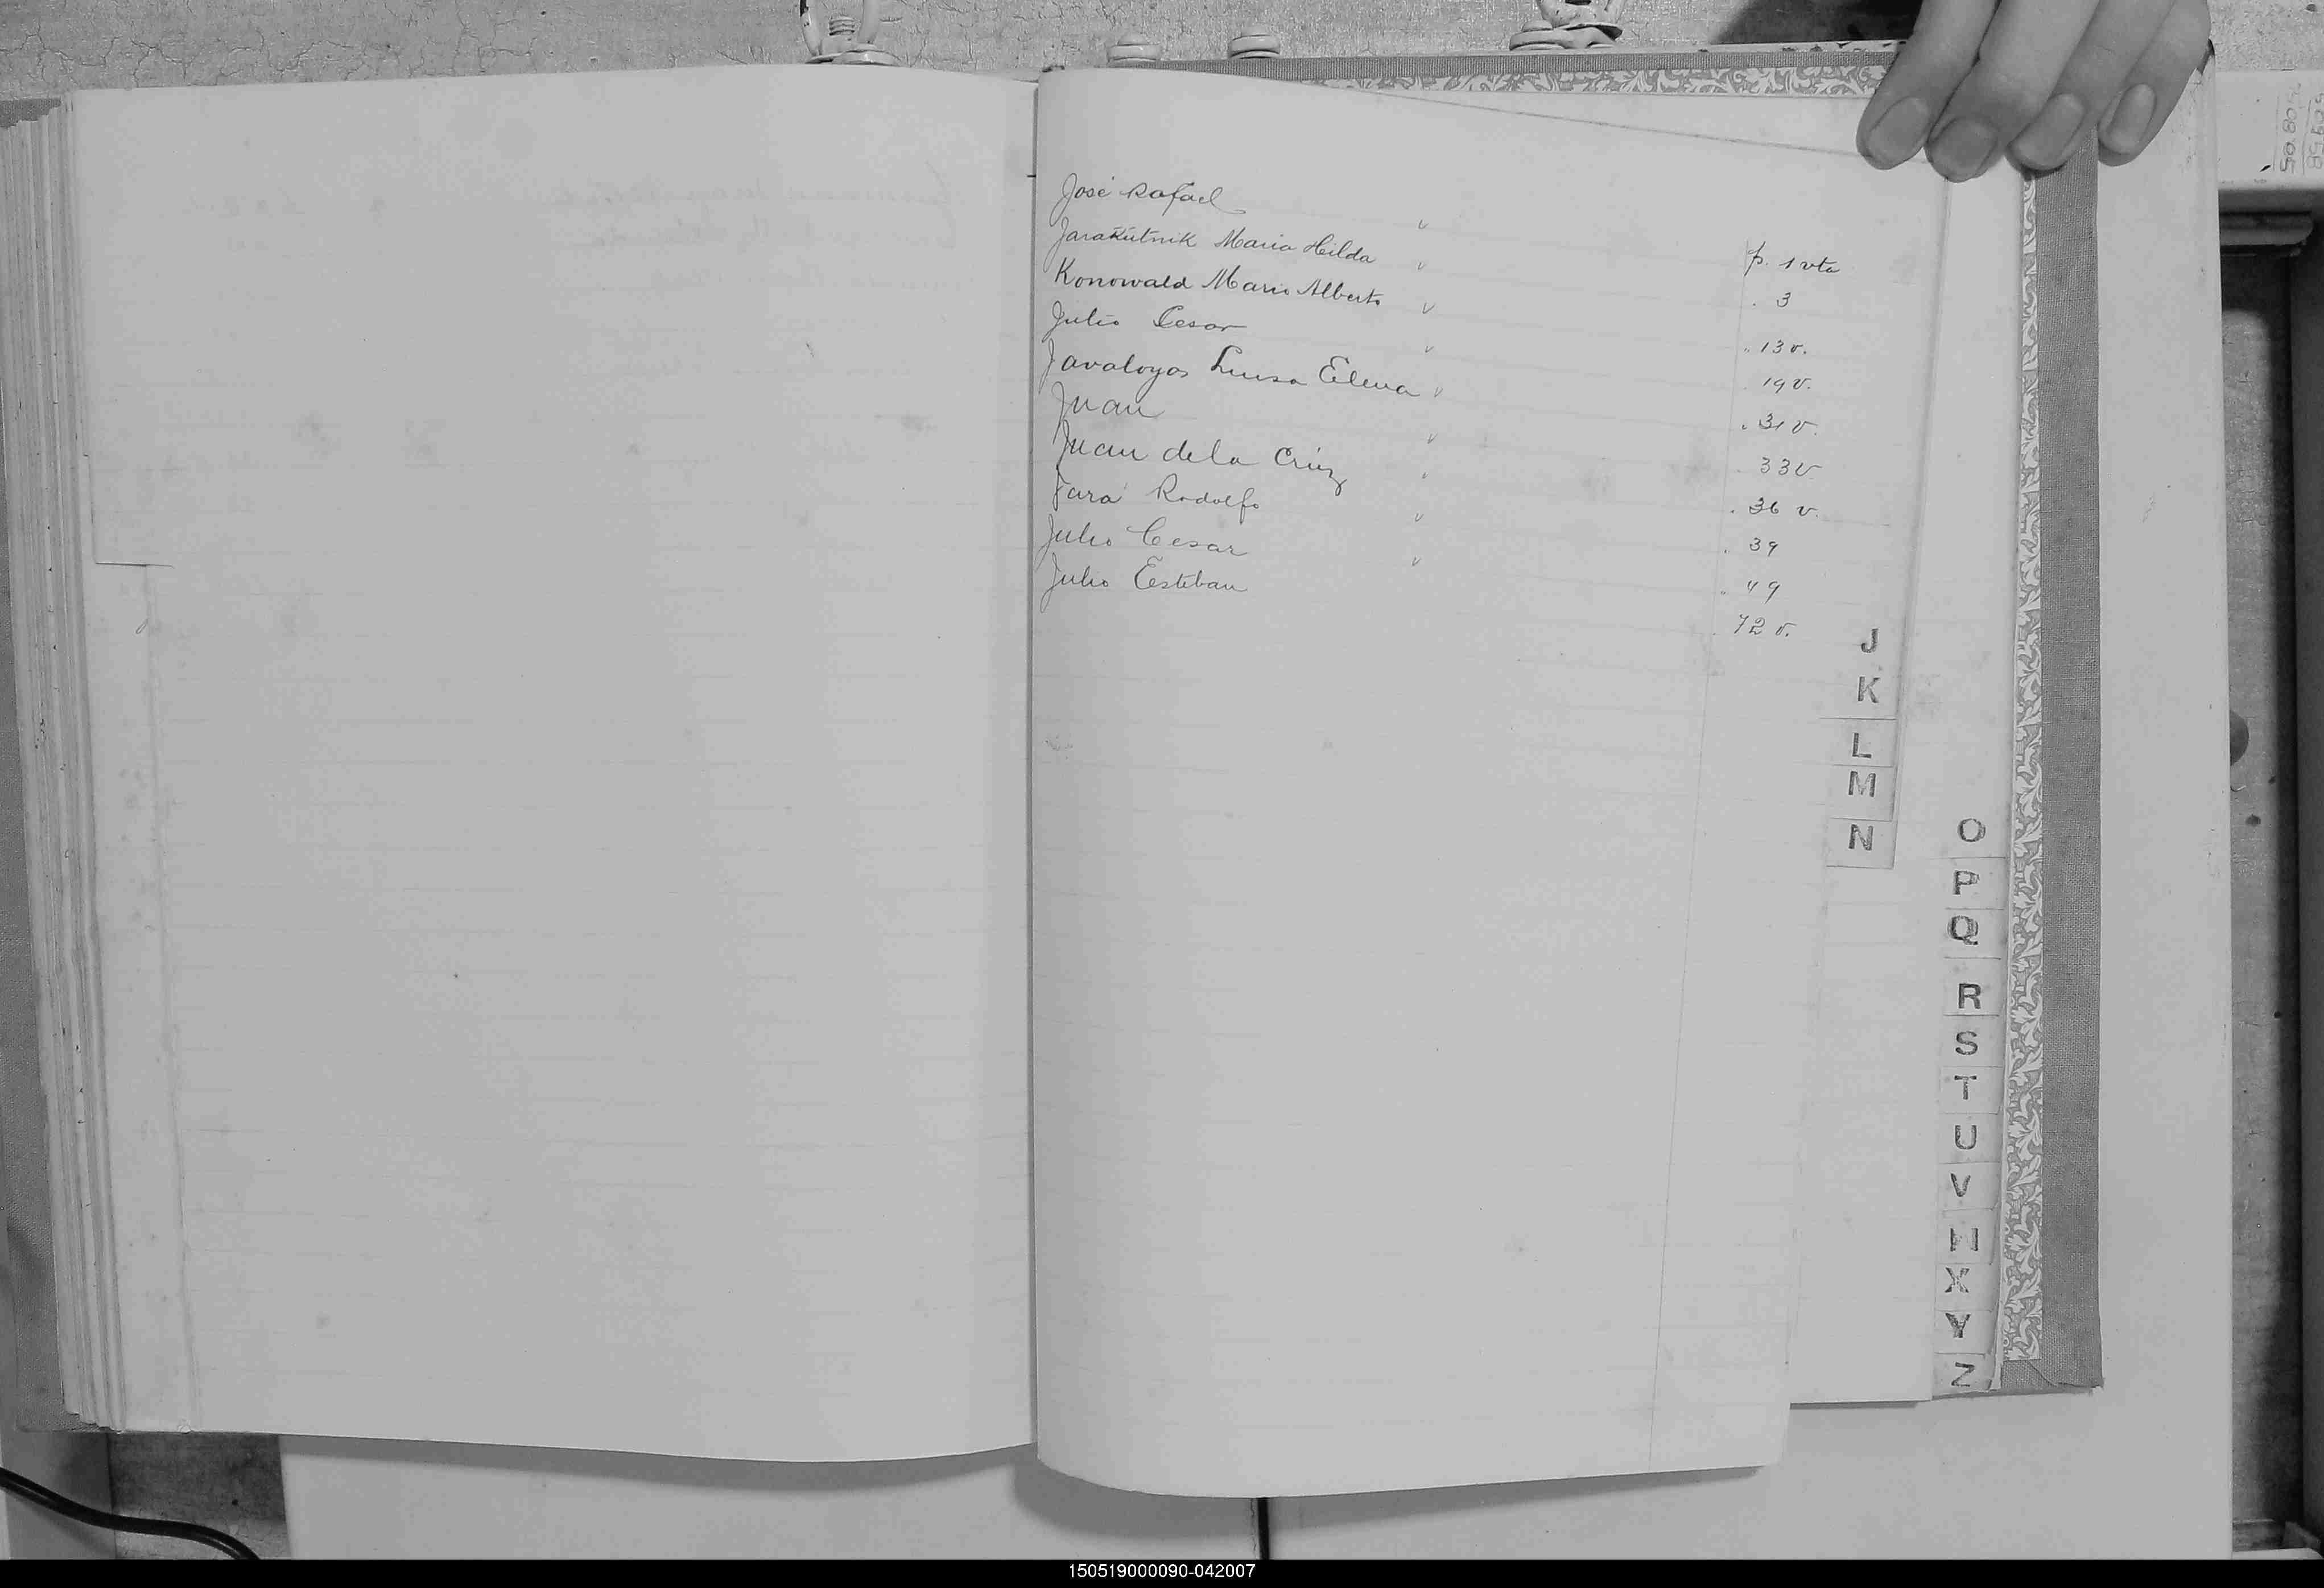 José Rafael p. 1 vta
Jarakutnik Maria Hilda . 3
Konowald Mario Alberto " 13 v.
Julio Cesar 19 v.
Javaloyas Luisa Elena . 31 v.
Juan 33 v.
Juan de la Cruz . 36 v.
Jara Rodolfo . 39
Julio Cesar . 49
Julio Esteban . 72 v.
J
K
L
M
N
O
P
Q
R
S
T
U
V
W
X
Y
Z
150519000090-042007